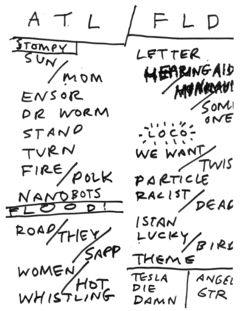 ATL / FLD
STOMPY
SUN / MOM
ENSOR
DR WORM
STAND
TURN
FIRE / POLK
NANOBOTS
FLOOD!
ROAD / THEY / SAPP
WOMEN / HOT
WHISTLING
LETTER
HEARING AID
SOME ONE
LOCO
WE WANT / TWIS
PARTICLE
RACIST / DEAD
ISTAN
LUCKY / BIRD
THEME
TESLA
DIE
DAMN
ANGEL
GTR